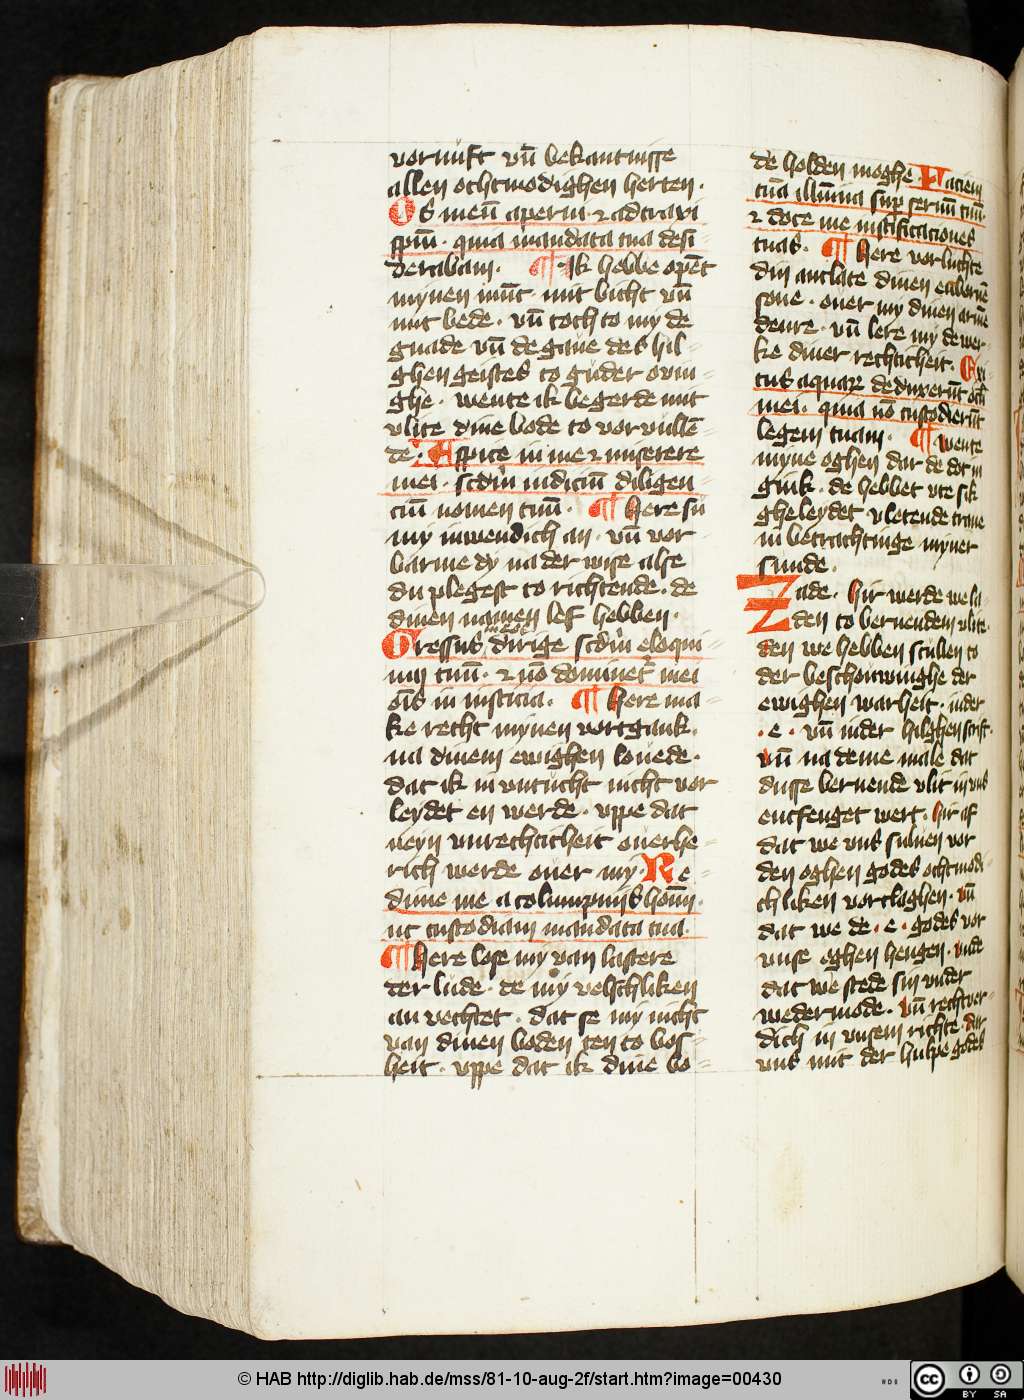 vornuft vn̄ bekantnisse
allen othmodighen herten ·
Os meū aperui · ⁊ adtraxi
spm̄ · quia mandata tua desi
derabam · ¶ Ik hebbe opēt
mynen mūt · mit bicht vn̄
mit bede · vn̄ toch to my de
gnade vn̄ de gaue des hil
ghen geistes to guder ouin
ghe · wente ik begerde mit
vlite dine bode to vorvullē
de · Aspice in me ⁊ miserere
mei · scdm̄ iudiciū diligen
ciū nomen tuū · ¶ Here su
my inwendich an · vn̄ vor
barme dy na der wise alse
du plegest to richtende · de
dinen namen lef hebben ·
Gressus meos dirige scdm̄ eloqui
um tuū · ⁊ nō dominet᷑ mei
oīs in iusticia · ¶ Here ma
ke recht mynen vortgank ·
na dinem ewighen louede ·
dat ik in vntucht nicht vor
leydet en werde · vppe dat
neyn vnrechticheit ouerhe
rich werde ouer my · Re
dime me a columpniis homī ·
ut custodiam mandata tua ·
¶ Here lose my van lastere
der lude · de my velschliken
an vechtet · dat se my nicht
van dinen boden ten to bos
heit · vppe dat ik dine bo
de holden moghe · Faciem
tuā illumina sup seruū tuū
⁊ doce me iustificaciones
tuas · ¶ Here vorluchte
din antlate dinen
sone · ouer my dinen armē
denre · vn̄ lere my de wer
ke diner rechticheit · Exi
tus aquarꝝ deduxerūt och
mei · quia nō custodierūt
legem tuam · ¶ Wente
myne oghen dar de dot in
gink · de hebbet vte sik
gheleydet vletende trane
in betrachtinge myner
sunde ·
Zade · Hir werde we la
den to bernendem vlite ·
den we hebben scullen to
der beschouwinghe der
ewighen warheit · inder
· e · vn̄ inder hilghen scrift ·
vn̄ na deme male dat
dusse bernende vlit in vns
entfenget wert · hir af
dat we vns suluen vor
den oghen godes othmodi
chliken vorclaghen · vn̄
dat we de · e · godes vor
vnse oghen hengen · vnde
dat we stede sin vnder
wedermode · vn̄ rechtver
dich in vnsem richte · dar
vns mit der hulpe godes
© HAB http://diglib.hab.de/mss/81-10-aug-2f/start.htm?image=00430
HAB
cc BY SA